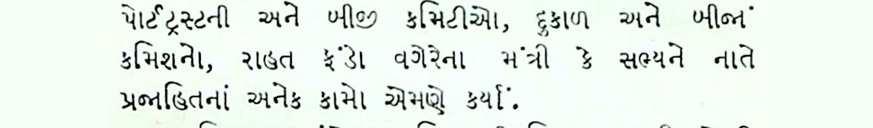 પોર્ટટ્રસ્ટની અને બીજી કમિટીઓ, દુકાળ અને બીજાં
કમિશનો, રાહત ફંડો વગેરેના મંત્રી કે સભ્યને નાતે
પ્રજાહિતનાં અનેક કામો એમણે કર્યાં.